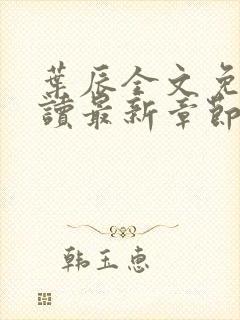 葉辰全文免
讀最新章節
韩玉惠